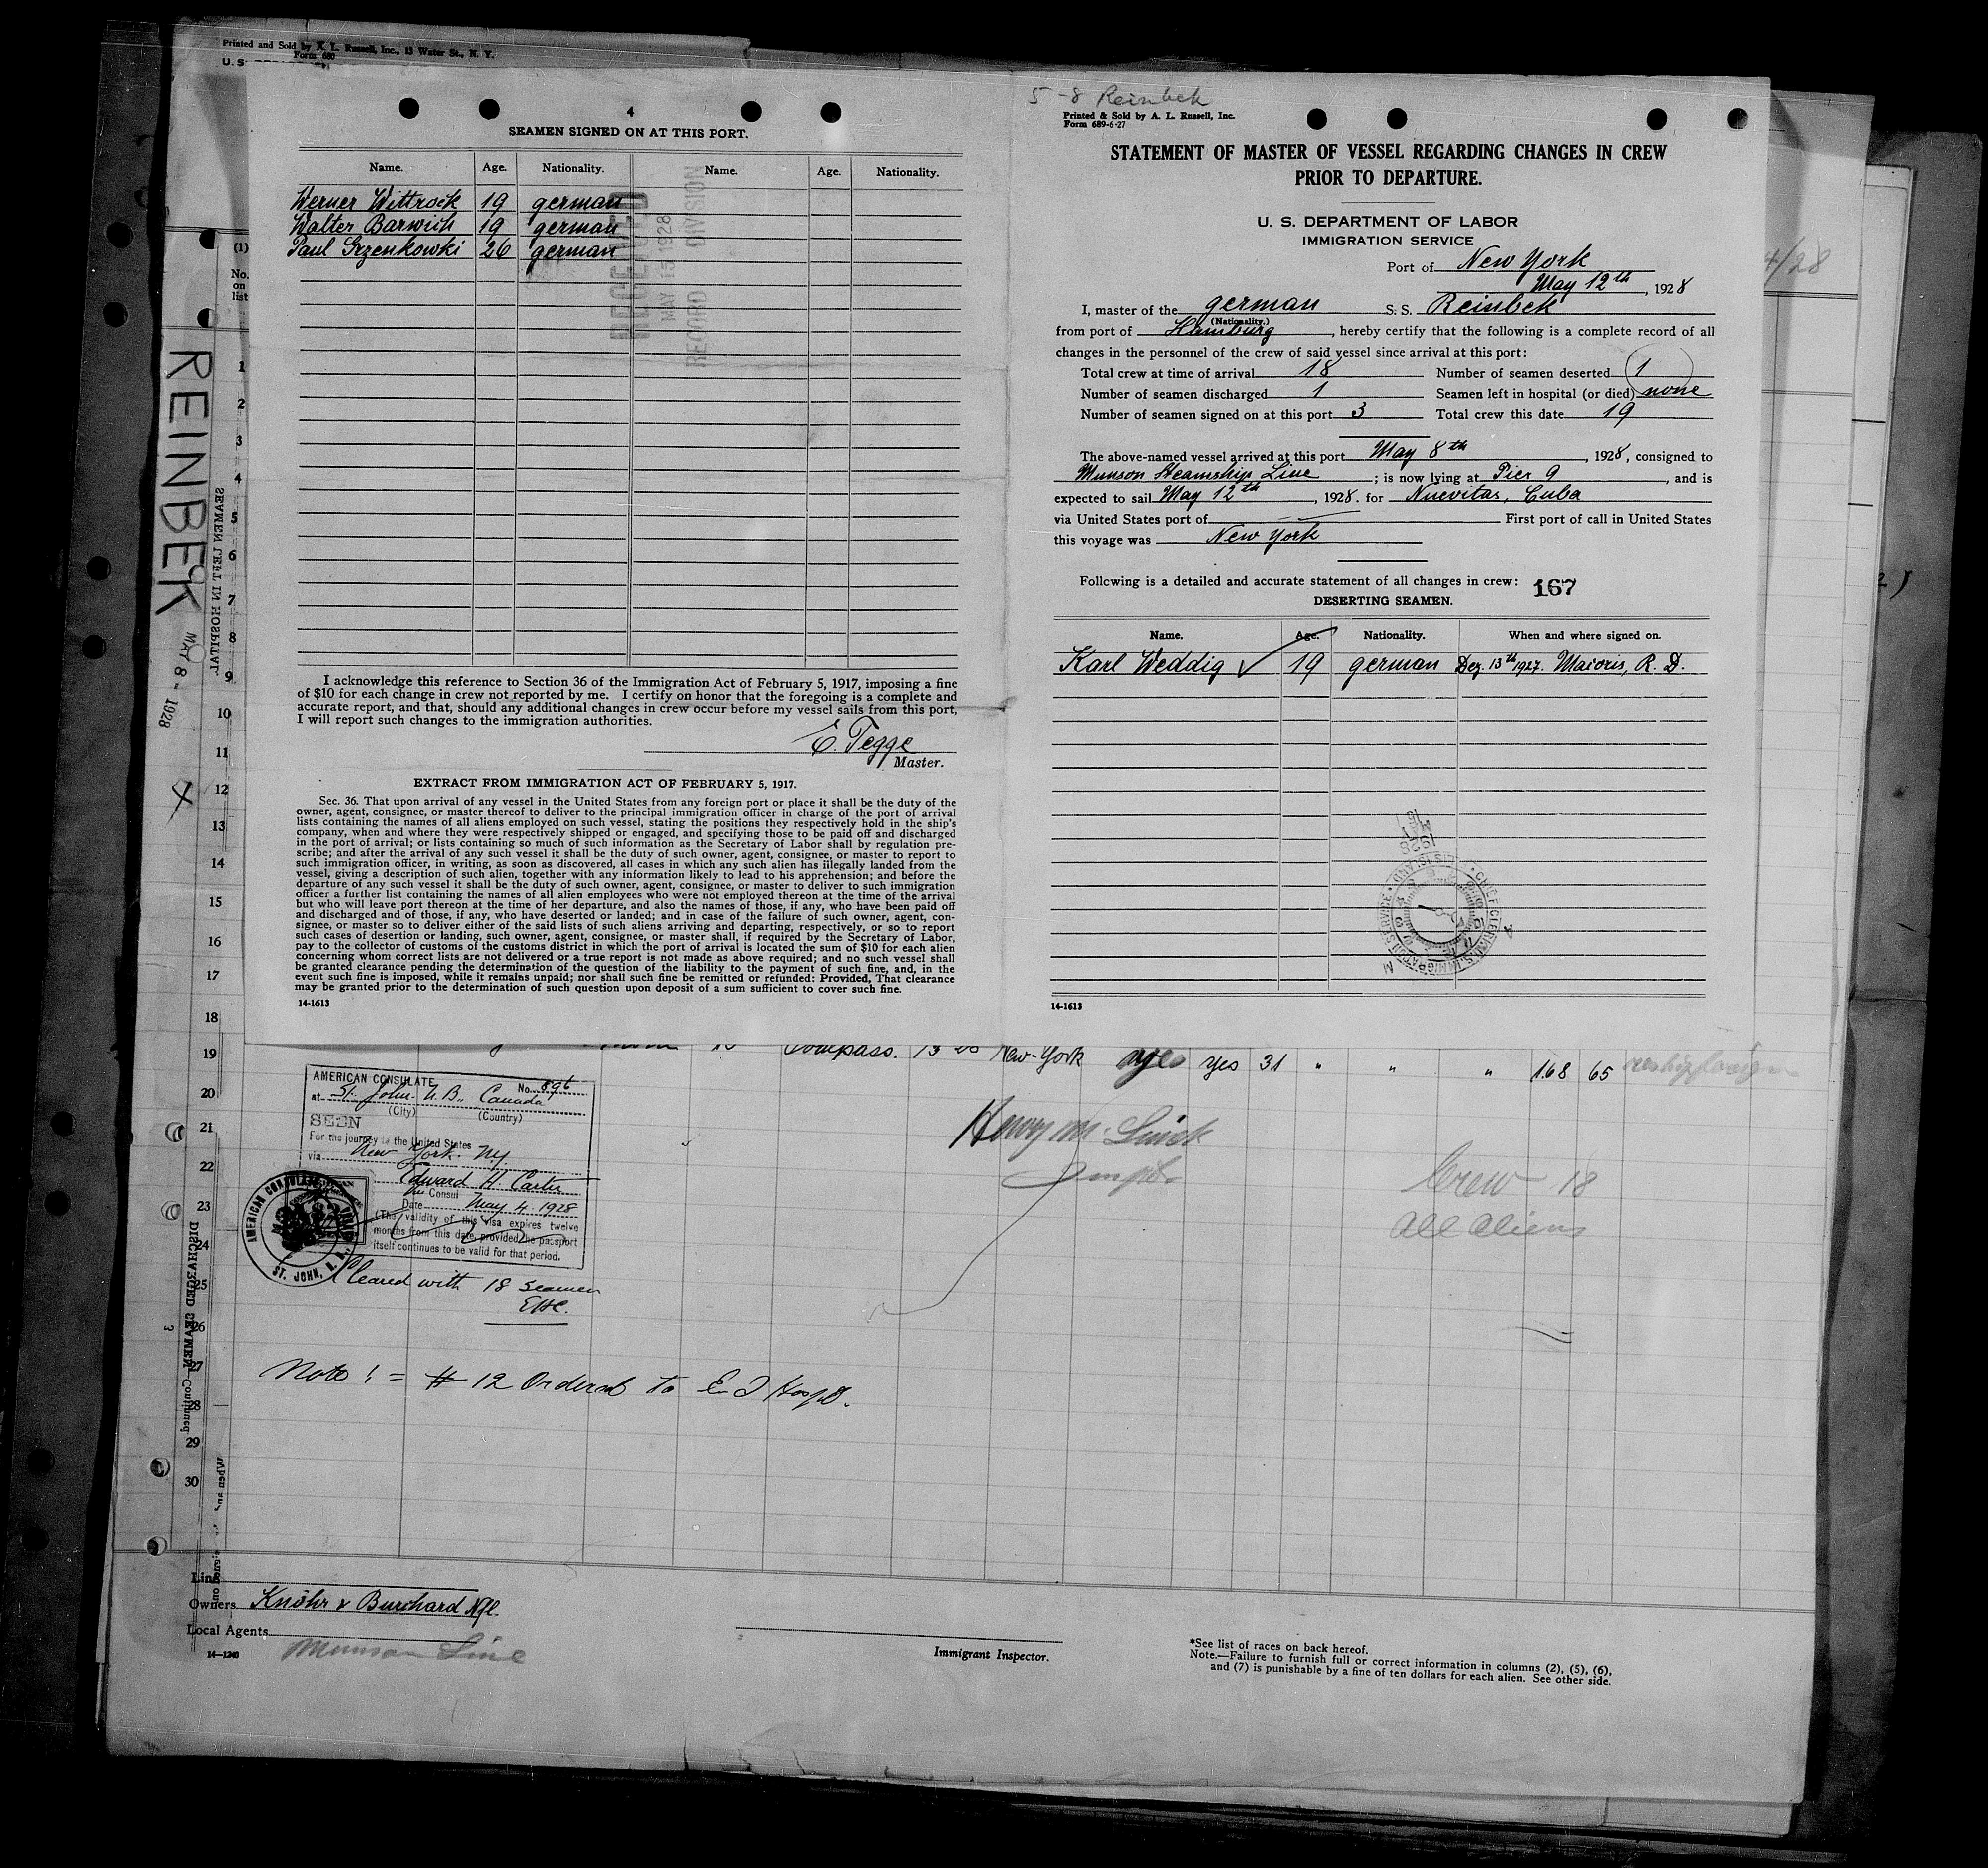 Printed and Sold by A. L. Russell, Inc., 13 Water St., N. Y.
Form 680
U. S.
4
SEAMEN SIGNED ON AT THIS PORT.
Name. Age. Nationality. Name. Age. Nationality.
Werner Wittrock 19 german
Walter Barwich 19 german
Paul Grzenkowski 26 german
RECEIVED
MAY 15 1928
RECORD DIVISION
I acknowledge this reference to Section 36 of the Immigration Act of February 5, 1917, imposing a fine
of $10 for each change in crew not reported by me. I certify on honor that the foregoing is a complete and
accurate report, and that, should any additional changes in crew occur before my vessel sails from this port,
I will report such changes to the immigration authorities.
E. Tegge
Master.
EXTRACT FROM IMMIGRATION ACT OF FEBRUARY 5, 1917.
Sec. 36. That upon arrival of any vessel in the United States from any foreign port or place it shall be the duty of the
owner, agent, consignee, or master thereof to deliver to the principal immigration officer in charge of the port of arrival
lists containing the names of all aliens employed on such vessel, stating the positions they respectively hold in the ship's
company, when and where they were respectively shipped or engaged, and specifying those to be paid off and discharged
in the port of arrival; or lists containing so much of such information as the Secretary of Labor shall by regulation pre-
scribe; and after the arrival of any such vessel it shall be the duty of such owner, agent, consignee, or master to report to
such immigration officer, in writing, as soon as discovered, all cases in which any such alien has illegally landed from the
vessel, giving a description of such alien, together with any information likely to lead to his apprehension; and before the
departure of any such vessel it shall be the duty of such owner, agent, consignee, or master to deliver to such immigration
officer a further list containing the names of all alien employees who were not employed thereon at the time of the arrival
but who will leave port thereon at the time of her departure, and also the names of those, if any, who have been paid off
and discharged and of those, if any, who have deserted or landed; and in case of the failure of such owner, agent, con-
signee, or master so to deliver either of the said lists of such aliens arriving and departing, respectively, or so to report
such cases of desertion or landing, such owner, agent, consignee, or master shall, if required by the Secretary of Labor,
pay to the collector of customs of the customs district in which the port of arrival is located the sum of $10 for each alien
concerning whom correct lists are not delivered or a true report is not made as above required; and no such vessel shall
be granted clearance pending the determination of the question of the liability to the payment of such fine, and, in the
event such fine is imposed, while it remains unpaid; nor shall such fine be remitted or refunded: Provided, That clearance
may be granted prior to the determination of such question upon deposit of a sum sufficient to cover such fine.
14-1613
5-8 Reinbek
Printed & Sold by A. L. Russell, Inc.
Form 689-6-27
STATEMENT OF MASTER OF VESSEL REGARDING CHANGES IN CREW
PRIOR TO DEPARTURE.
U. S. DEPARTMENT OF LABOR
IMMIGRATION SERVICE
Port of New York
May 12th, 1928
I, master of the german S. S. Reinbek
(Nationality.)
from port of Hamburg, hereby certify that the following is a complete record of all
changes in the personnel of the crew of said vessel since arrival at this port:
Total crew at time of arrival 18 Number of seamen deserted 1
Number of seamen discharged 1 Seamen left in hospital (or died) none
Number of seamen signed on at this port 3 Total crew this date 19
The above-named vessel arrived at this port May 8th, 1928, consigned to
Munson Steamship Line; is now lying at Pier 9, and is
expected to sail May 12th, 1928. for Nuevitas, Cuba
via United States port of First port of call in United States
this voyage was New York
Following is a detailed and accurate statement of all changes in crew: 167
DESERTING SEAMEN.
Name. Age. Nationality. When and where signed on.
Karl Weddig ✓ 19 german Dez. 13th 1927. Macoris, R. D.
14-1613
4/28
(1)
No.
on
list
REINBEK
MAY 8 - 1928
SEAMEN LEFT IN HOSPITAL
1
2
3
4
5
6
7
8
9
10
11
12
13
14
15
16
17
18
19 Compass. New-York yes yes 31 " " " 168 65
20
21
22
23
24
25
26
27
28
29
30
3
DISCHARGED SEAMEN—Continued
AMERICAN CONSULATE No. 896
at St. John. N.B., Canada
(City) (Country)
SEEN
For the journey to the United States
via New York. N.Y.
Edward H. Carter
Consul
Date May 4. 1928
(The validity of this visa expires twelve
months from this date, provided the passport
itself continues to be valid for that period.
AMERICAN CONSULATE
ST. JOHN, N. B.
Cleared with 18 seamen
EHC.
Crew - 18
All Aliens
Note! = # 12 Ordered to E I Hospt.
Line
Owners Knöhr & Burchard Nfl.
Local Agents
Munson Line
14—1240
Immigrant Inspector.
*See list of races on back hereof.
Note.—Failure to furnish full or correct information in columns (2), (5), (6),
and (7) is punishable by a fine of ten dollars for each alien. See other side.